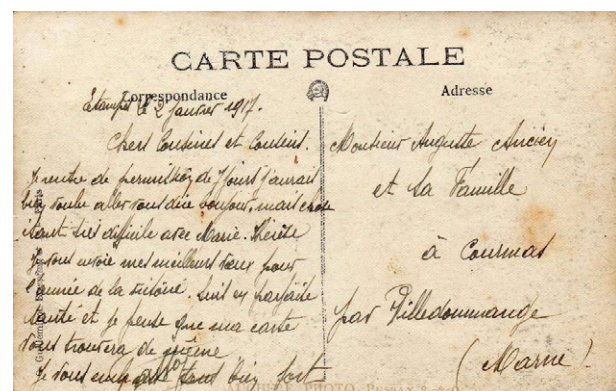 CARTE POSTALE
Correspondance
Adresse
Etampes le 2 Janvier 1917.
Chers Cousines et Cousins.
Je rentre de permission de 7 jours j'aurais
bien voulu aller vous dire bonjour, mais chose
étant très difficile avec Marie-Thérèse
Je vous envoie mes meilleurs vœux pour
l'année de la victoire. Suis en parfaite
santé et je pense que ma carte
vous trouvera de même
Je vous embrasse tous bien fort
Monsieur Auguste
et sa Famille
à Courmas
par Villedommange
(Marne)
PHOTO